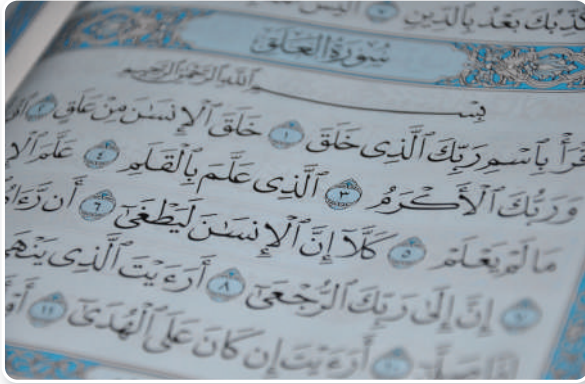 يُكَذِّبُكَ بَعْدُ بِٱلدِّينِ ٧ أَلَيْسَ ٱللَّهُ
سُورَةُ العَلَقِ
بِسْمِ ٱللَّهِ ٱلرَّحْمَٰنِ ٱلرَّحِيمِ
ٱقْرَأْ بِٱسْمِ رَبِّكَ ٱلَّذِى خَلَقَ ١ خَلَقَ ٱلْإِنسَٰنَ مِنْ عَلَقٍ ٢ ٱقْرَأْ
وَرَبُّكَ ٱلْأَكْرَمُ ٣ ٱلَّذِى عَلَّمَ بِٱلْقَلَمِ ٤ عَلَّمَ
مَا لَمْ يَعْلَمْ ٥ كَلَّآ إِنَّ ٱلْإِنسَٰنَ لَيَطْغَىٰٓ ٦ أَن رَّءَاهُ
٧ إِنَّ إِلَىٰ رَبِّكَ ٱلرُّجْعَىٰٓ ٨ أَرَءَيْتَ ٱلَّذِى يَنْهَىٰ
صَلَّىٰٓ ١٠ أَرَءَيْتَ إِن كَانَ عَلَى ٱلْهُدَىٰٓ ١١